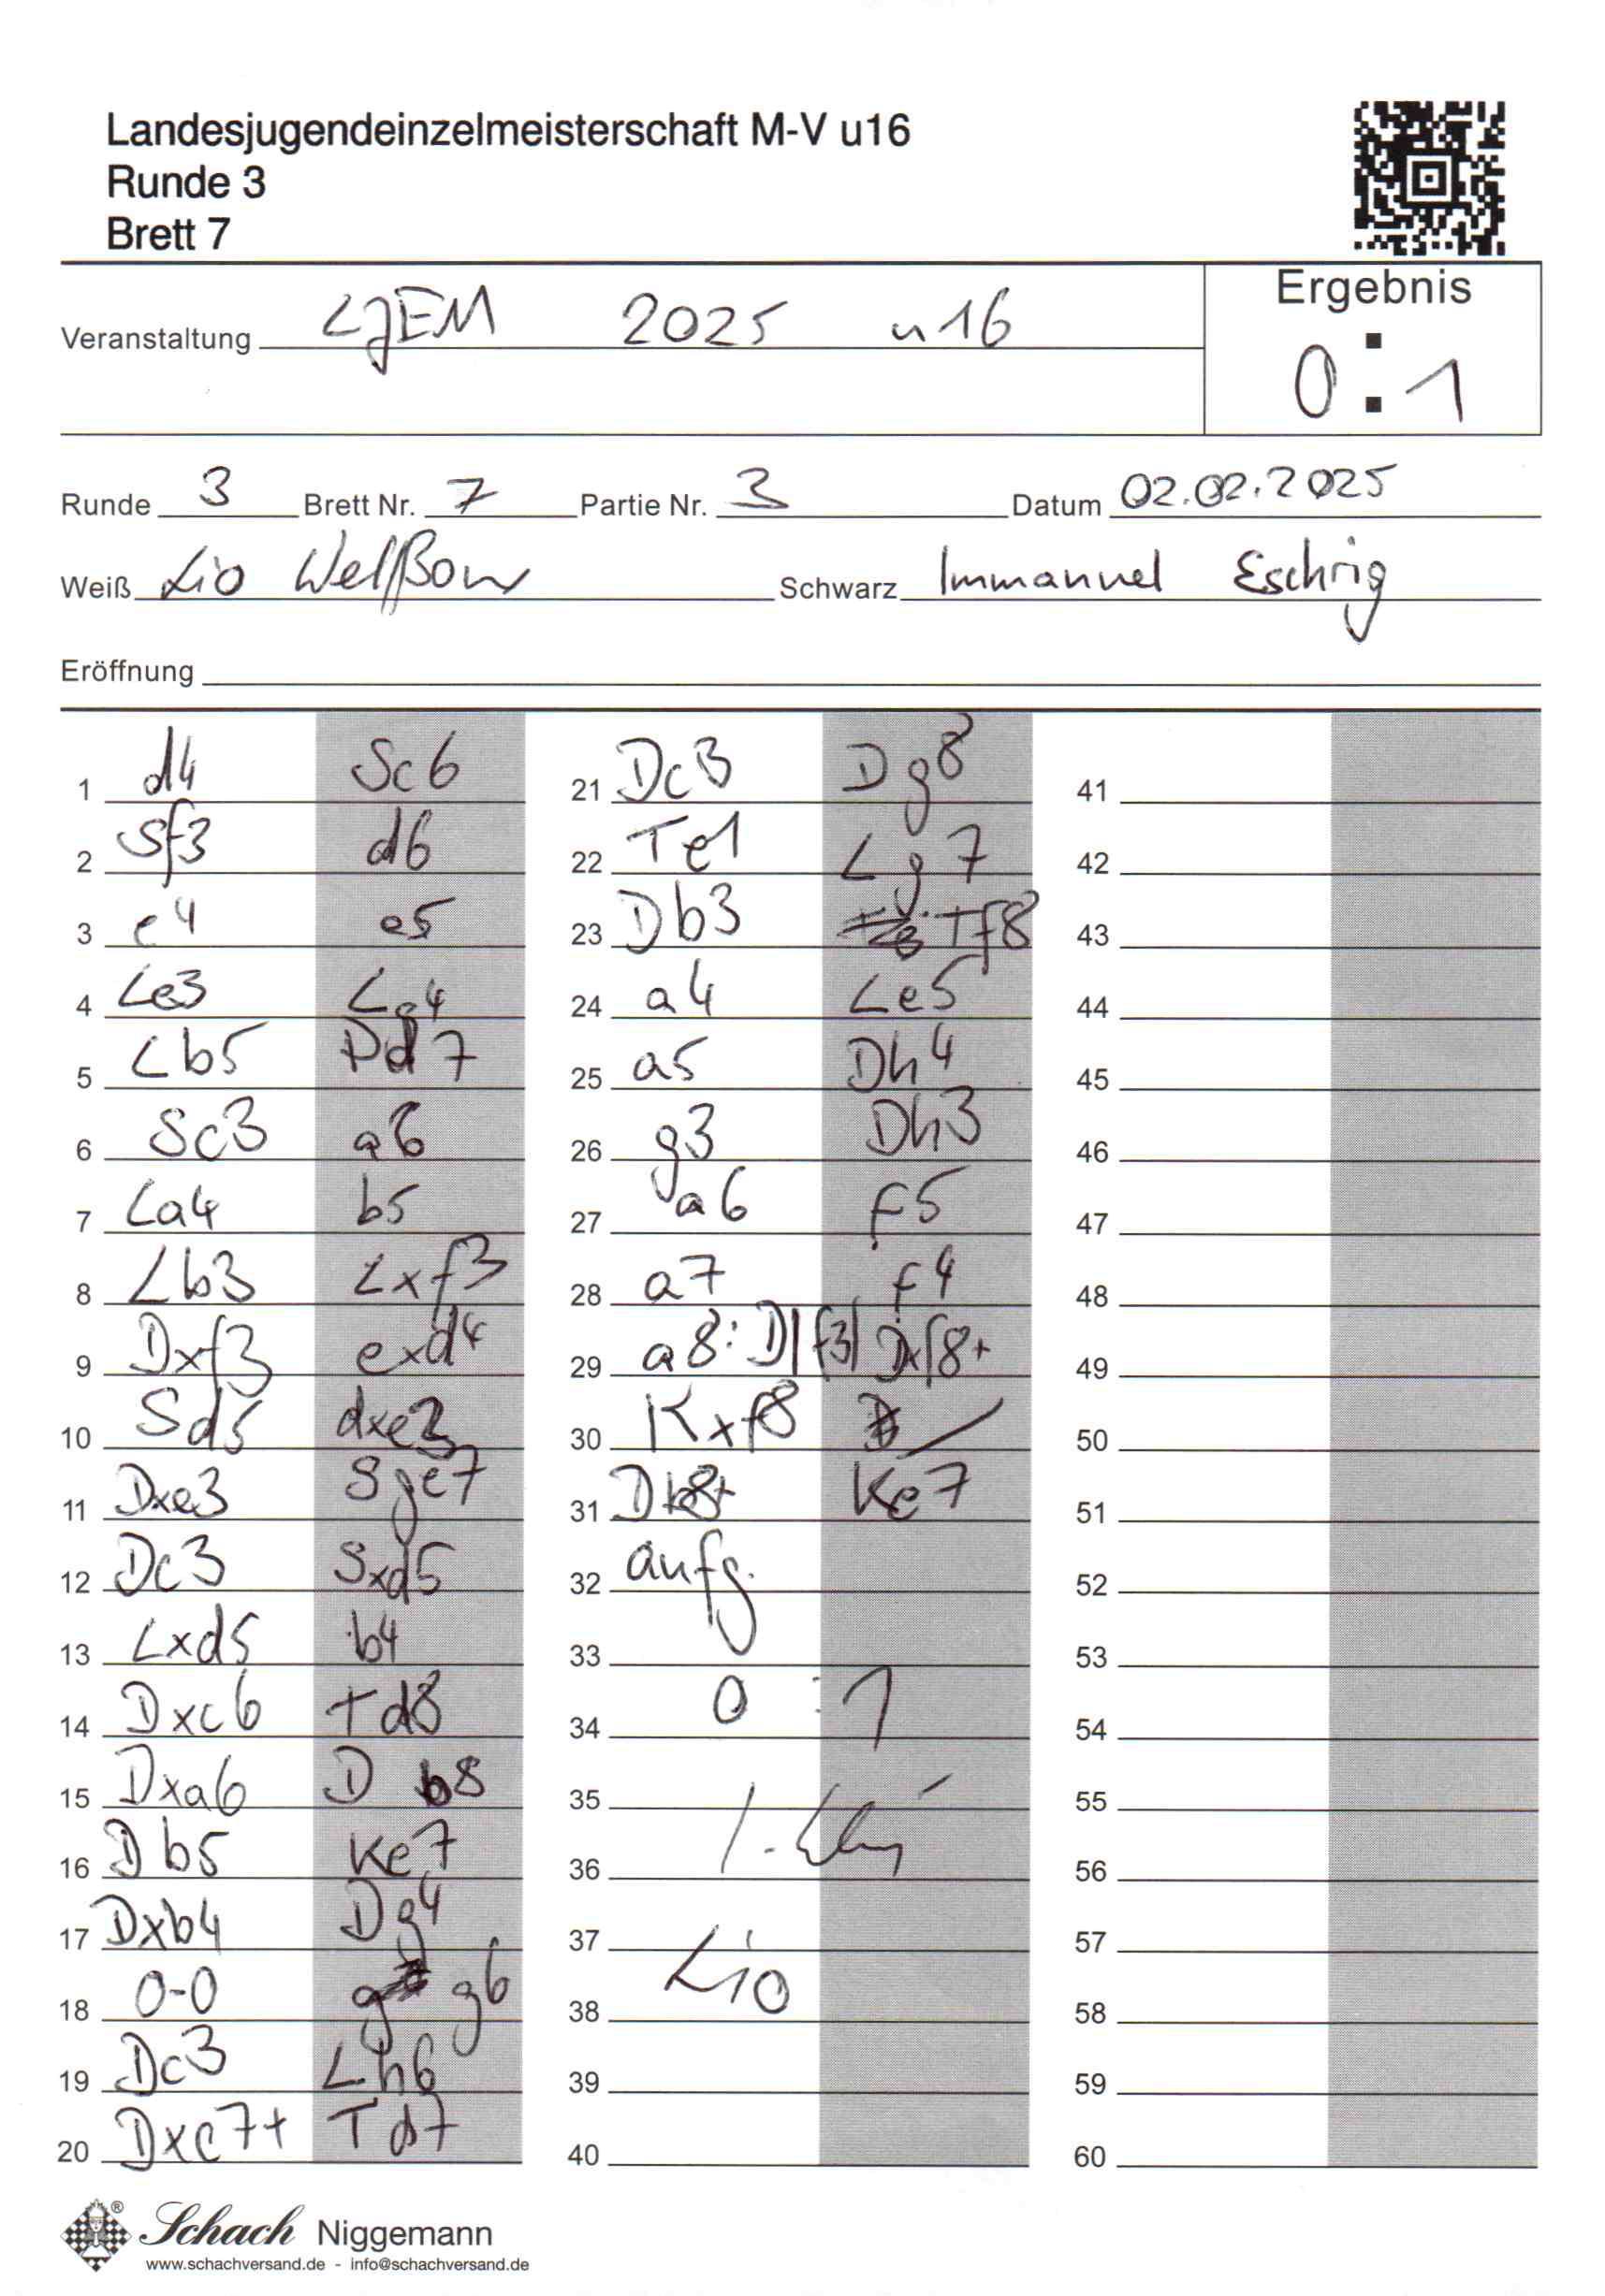 Landesjugendeinzelmeisterschaft M-V u16
Runde 3
Brett 7
Ergebnis
0:1
Veranstaltung LJEM 2025 u16
Runde 3 Brett Nr. 7 Partie Nr. 3 Datum 02.02.2025
Weiß Lio Welßow Schwarz Immanuel Eschrig
Eröffnung
1 d4 Sc6
2 Sf3 d6
3 e4 e5
4 Le3 Lg4
5 Lb5 Dd7
6 Sc3 a6
7 La4 b5
8 Lb3 Lxf3
9 Dxf3 exd4
10 Sd5 dxe3
11 Dxe3 Sge7
12 Dc3 Sxd5
13 Lxd5 b4
14 Dxc6 Td8
15 Dxa6 D b8
16 Db5 Ke7
17 Dxb4 Dg4
18 0-0 g6
19 Dc3 Lh6
20 Dxc7+ Td7
21 Dc3 Dg8
22 Te1 Lg7
23 Db3 Tf8
24 a4 Le5
25 a5 Dh4
26 g3 Dh3
27 a6 f5
28 a7 f4
29 a8:D|f3| Dxf8+
30 Kxf8
31 Db8+ Ke7
32 aufg.
33
34 0 : 1
35
36
37
38 Lio
39
40
41
42
43
44
45
46
47
48
49
50
51
52
53
54
55
56
57
58
59
60
Schach Niggemann
www.schachversand.de - info@schachversand.de